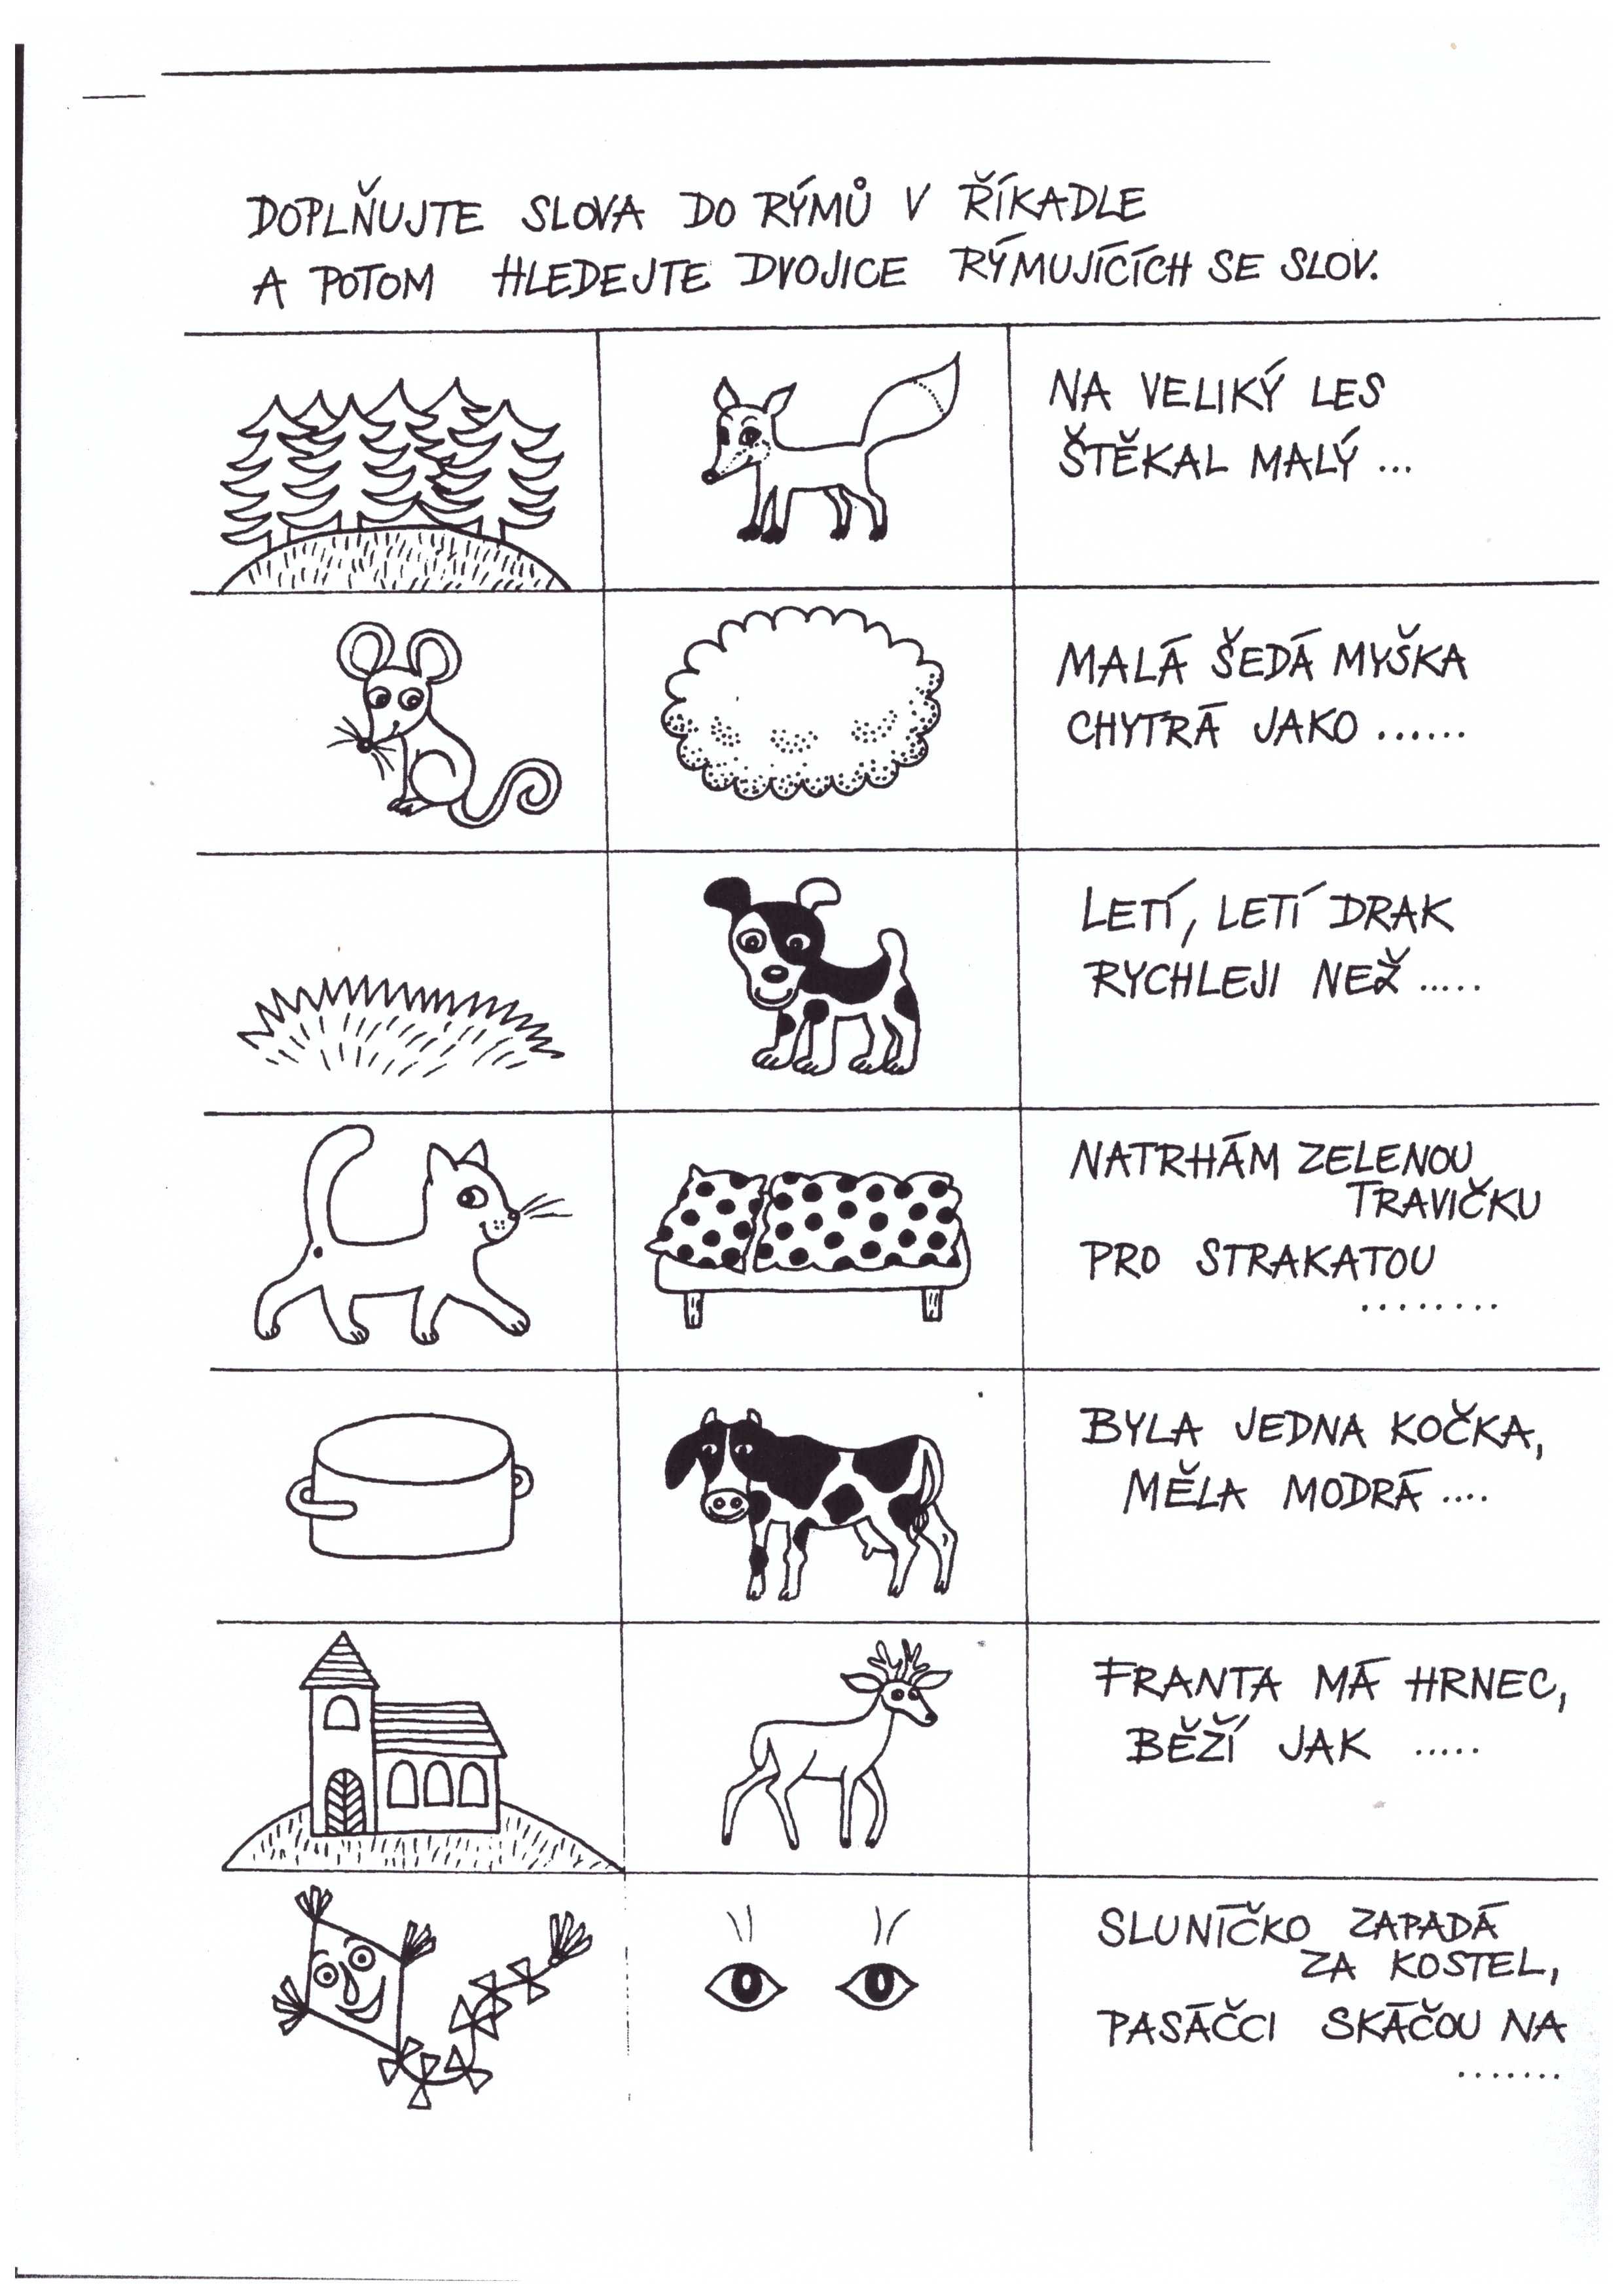 DOPLŇUJTE SLOVA DO RÝMŮ V ŘÍKADLE
A POTOM HLEDEJTE DVOJICE RÝMUJÍCÍCH SE SLOV.
NA VELIKÝ LES
ŠTĚKAL MALÝ ...
MALÁ ŠEDÁ MYŠKA
CHYTRÁ JAKO ......
LETÍ, LETÍ DRAK
RYCHLEJI NEŽ .....
NATRHÁM ZELENOU
TRAVIČKU
PRO STRAKATOU
........
BYLA JEDNA KOČKA,
MĚLA MODRÁ ....
FRANTA MÁ HRNEC,
BĚŽÍ JAK .....
SLUNÍČKO ZAPADÁ
ZA KOSTEL,
PASÁČCI SKÁČOU NA
.......